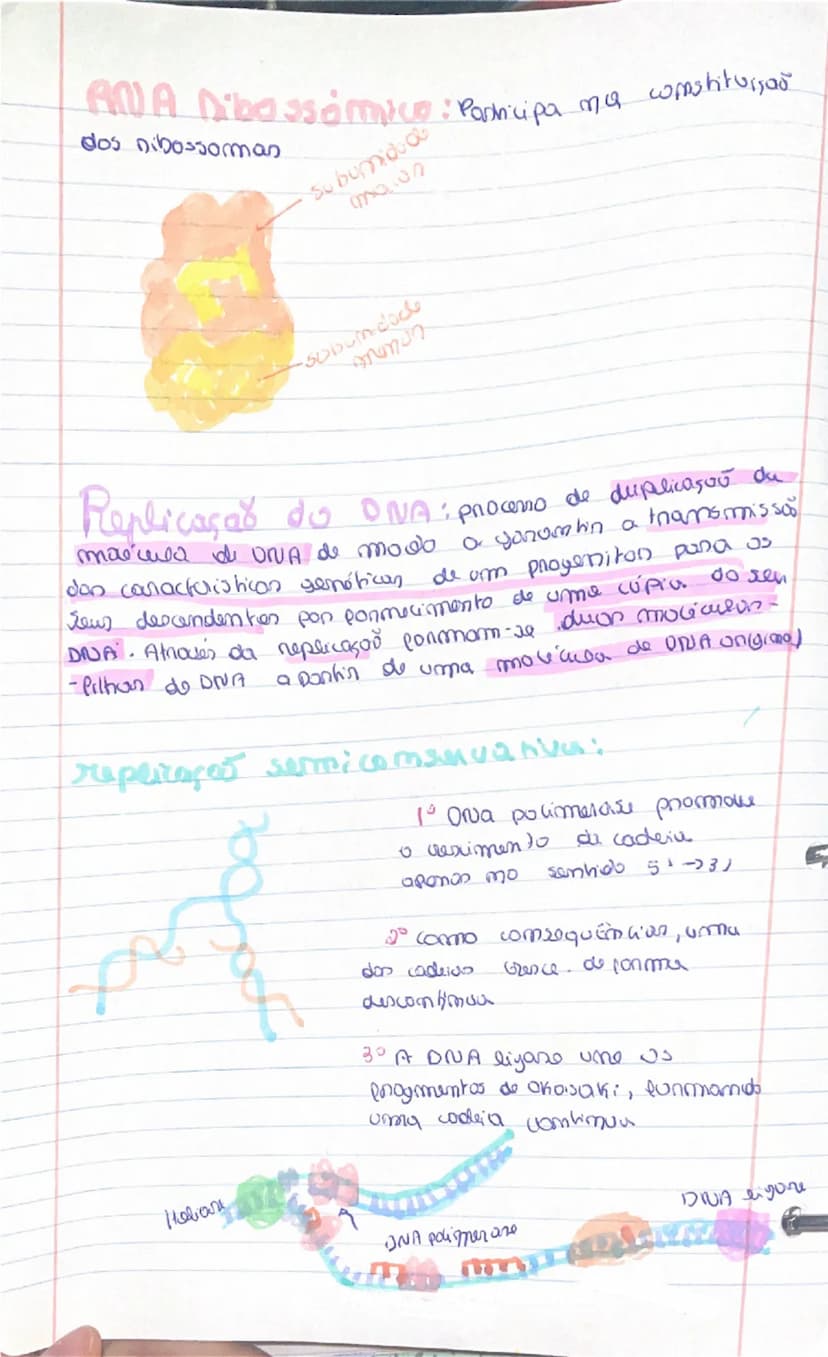 RNA Ribossómico: Participa na constituição
dos ribossomas
subunidade
maior
subunidade
menor
Replicação do DNA: processo de duplicação da
molécula de DNA de modo a garantir a transmissão
das características genéticas de um progenitor para os
seus descendentes por fornecimento de uma cópia do seu
DNA. Através da replicação formam-se duas moléculas-
-filhas de DNA a partir de uma molécula de DNA original
replicação semiconservativa:
1º DNA polimerase promove
o crescimento da cadeia
apenas no sentido 5'→3'
2º Como consequências, uma
das cadeias cresce de forma
descontínua
3º A DNA ligase une os
fragmentos de Okasaki, formando
uma cadeia contínua
Helicase
DNA polimerase
DNA ligase